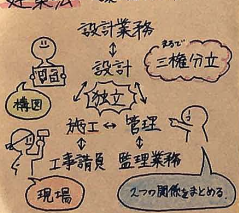 建築法
設計業務
設計
まるで
三権分立
構図
独立
施工 ⇔ 管理
工事請負 監理業務
現場
2つの関係をまとめる